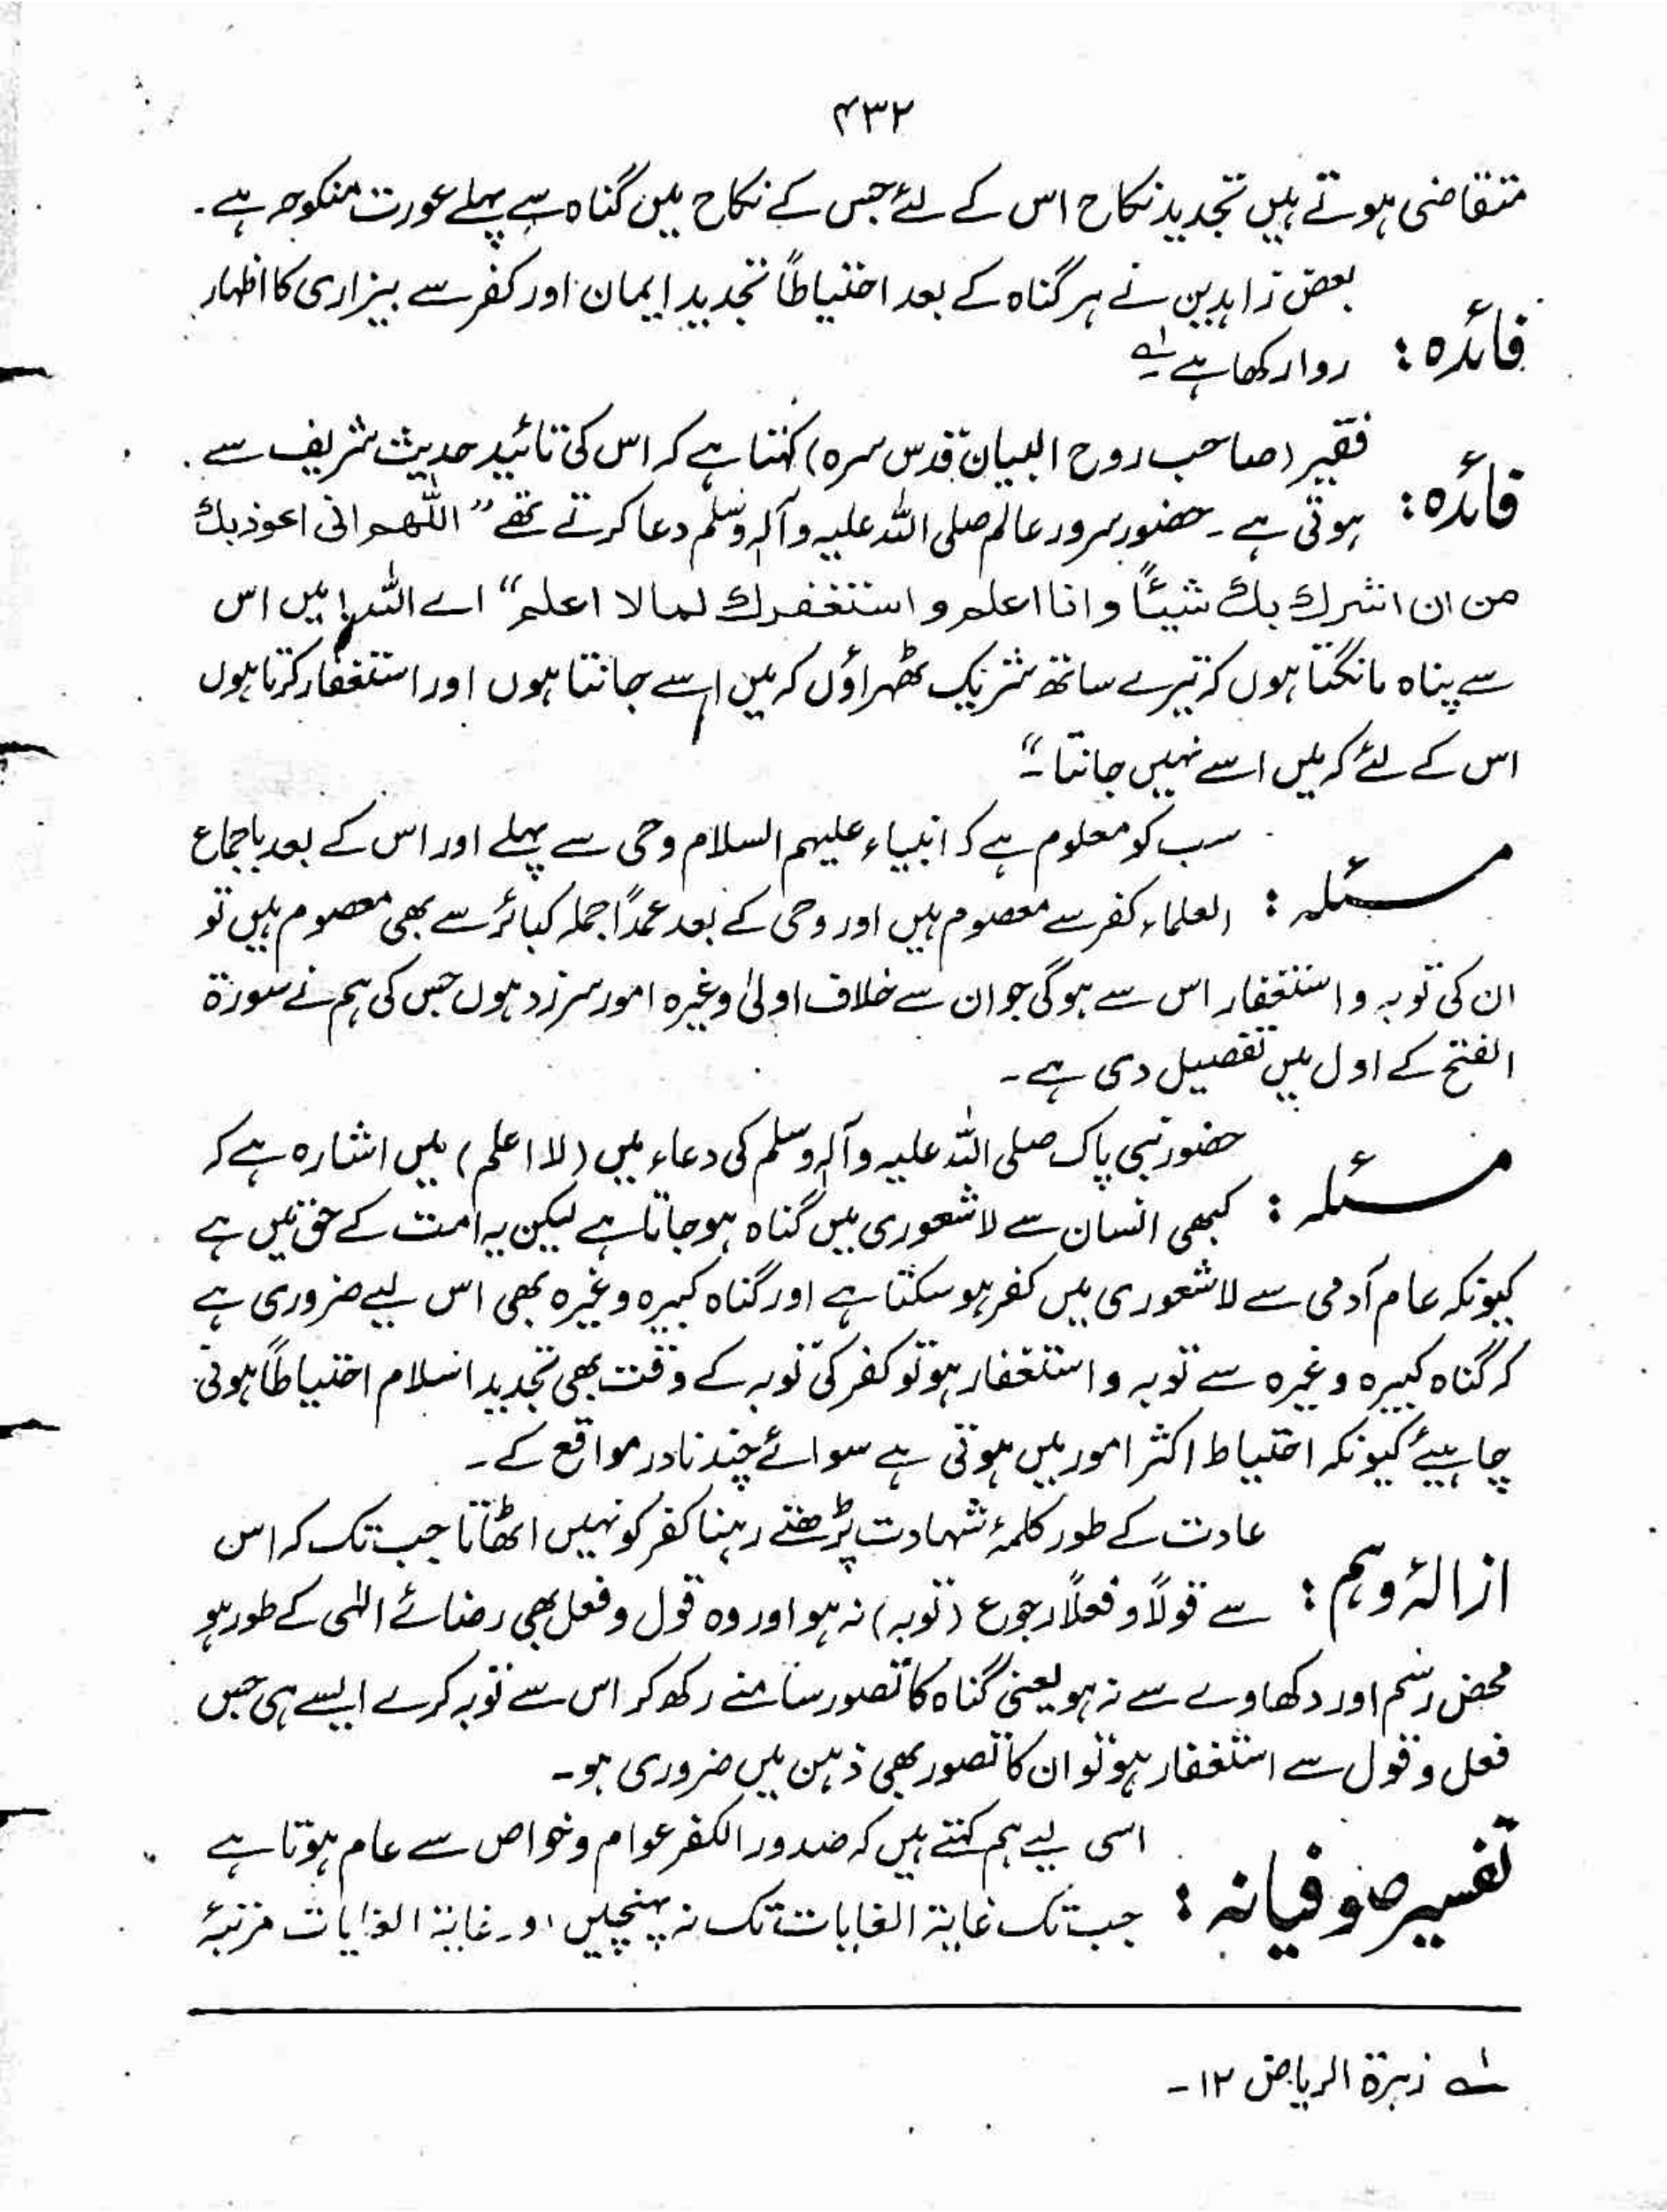 ۴۳۲
متقاضی ہوتے ہیں تجدید نکاح اس کے لئے جس کے نکاح میں گناہ سے پہلے عورت منکوحہ ہے۔
بعض زاہدین نے ہر گناہ کے بعد احتیاطاً تجدید ایمان اور کفر سے بیزاری کا اظہار
فائدہ : روا رکھا ہے لہ
فقیر (صاحب روح البیان قدس سرہ) کہتا ہے کہ اس کی تائید حدیث شریف سے
فائدہ : ہوتی ہے ۔ حضور سرور عالم صلی اللہ علیہ وآلہ وسلم دعا کرتے تھے ”اللّٰھم انی اعوذ بک
من ان اشرک بک شیئًا و انا اعلم و استغفرک لما لا اعلم“ اے اللہ! میں اس
سے پناہ مانگتا ہوں کہ تیرے ساتھ شریک ٹھہراؤں کہ میں اسے جانتا ہوں اور استغفار کرتا ہوں
اس کے لئے کہ میں اسے نہیں جانتا ۔“
سب کو معلوم ہے کہ انبیاء علیہم السلام وحی سے پہلے اور اس کے بعد باجماع
مسئلہ : العلماء کفر سے معصوم ہیں اور وحی کے بعد عمداً جملہ کبائر سے بھی معصوم ہیں تو
ان کی توبہ و استغفار اس سے ہوگی جو ان سے خلاف اولیٰ وغیرہ امور سرزد ہوں جس کی ہم نے سورۃ
الفتح کے اول میں تفصیل دی ہے ۔
حضور نبی پاک صلی اللہ علیہ وآلہ وسلم کی دعاء میں (لا اعلم) میں اشارہ ہے کہ
مسئلہ : کبھی انسان سے لاشعوری میں گناہ ہو جاتا ہے لیکن یہ امت کے حق میں ہے
کیونکہ عام آدمی سے لاشعوری میں کفر ہو سکتا ہے اور گناہ کبیرہ وغیرہ بھی اس لیے ضروری ہے
کہ گناہ کبیرہ وغیرہ سے توبہ و استغفار ہو تو کفر کی توبہ کے وقت بھی تجدید اسلام احتیاطاً ہونی
چاہیئے کیونکہ احتیاط اکثر امور میں ہوتی ہے سوائے چند نادر مواقع کے ۔
عادت کے طور کلمۂ شہادت پڑھتے رہنا کفر کو نہیں اٹھاتا جب تک کہ اس
ازالۂ وہم : سے قولاً و فعلاً رجوع (توبہ) نہ ہو اور وہ قول و فعل بھی رضائے الٰہی کے طور ہو
محض رسم اور دکھاوے سے نہ ہو یعنی گناہ کا تصور سامنے رکھ کر اس سے توبہ کرے ایسے ہی جس
فعل و قول سے استغفار ہو تو ان کا تصور بھی ذہن میں ضروری ہو ۔
اسی لیے ہم کہتے ہیں کہ صدور الکفر عوام و خواص سے عام ہوتا ہے
تفسیر صوفیانہ : جب تک غایۃ الغایات تک نہ پہنچیں اور غایۃ الغایات مرتبۂ
لہ زہرۃ الریاض ۱۲ ۔